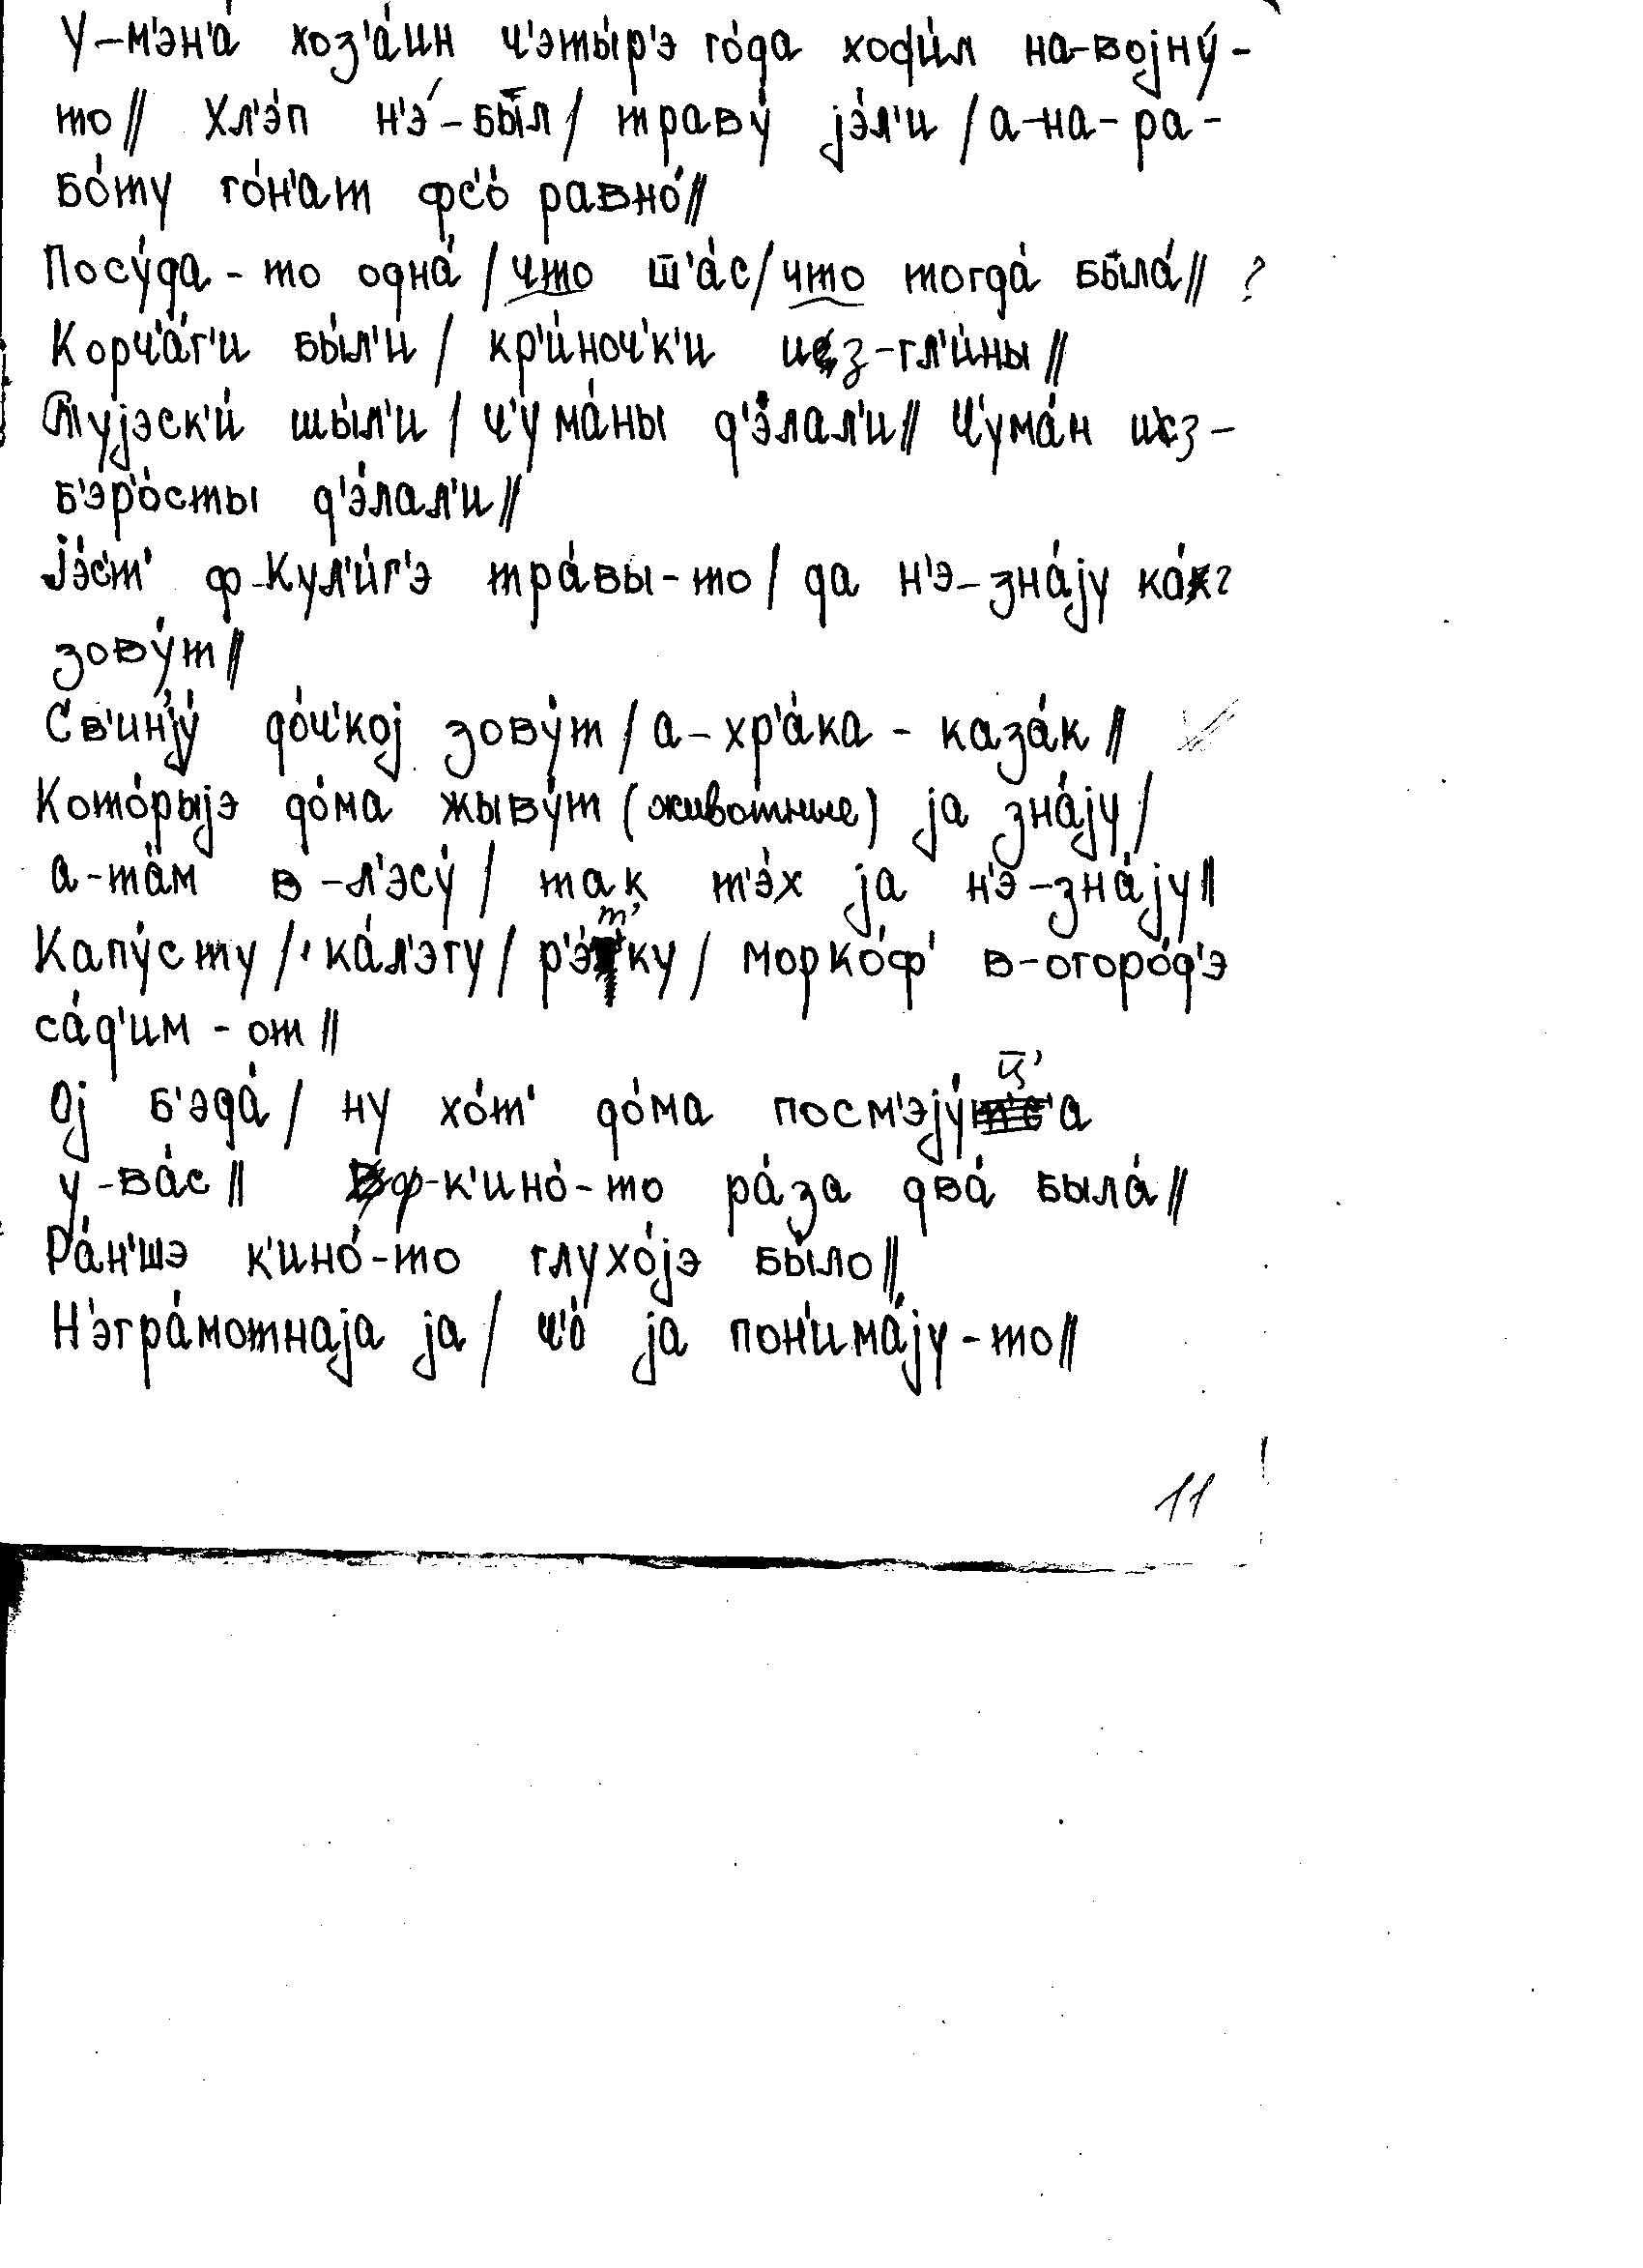 У-м'эн'а́ хоз'а́ин ч'эты́р'э го́да ходи́л на-војну́-
то// Хл'э́п н'э́-был/ траву́ јэ́л'и /а-на-ра-
бо́ту го́н'ат фс'о́ равно́//
Посу́да-то одна́ /что ш'а́с/ что тогда́ была́// ?
Корч'а́г'и бы́л'и / кр'и́ноч'к'и из-гл'и́ны//
Тујэск'и́ шы́л'и / ч'ума́ны д'э́лал'и// Ч'ума́н из-
б'эр'о́сты д'э́лал'и//
Јэ́с'т' ф-Кул'и́г'э тра́вы-то/ да н'э-зна́ју ка́г
зову́т//
С'в'ин'ју́ до́ч'кој зову́т/ а-хр'а́ка - каза́к//
Кото́рыјэ до́ма жыву́т (животные) ја зна́ју/
а-та́м в-л'эсу́/ так т'э́х ја н'э-зна́ју//
Капу́сту/ ка́л'эгу/ р'э́т'ку/ морко́ф' в-огоро́д'э
са́д'им-от//
Ој б'эда́/ ну хо́т' до́ма посм'эју́ц'а
у-ва́с// ф-к'ино́-то ра́за два́ была́//
Ра́н'шэ к'ино́-то глухо́јэ бы́ло//
Н'эгра́мотнаја ја/ ч'о́ ја пон'има́ју-то//
11